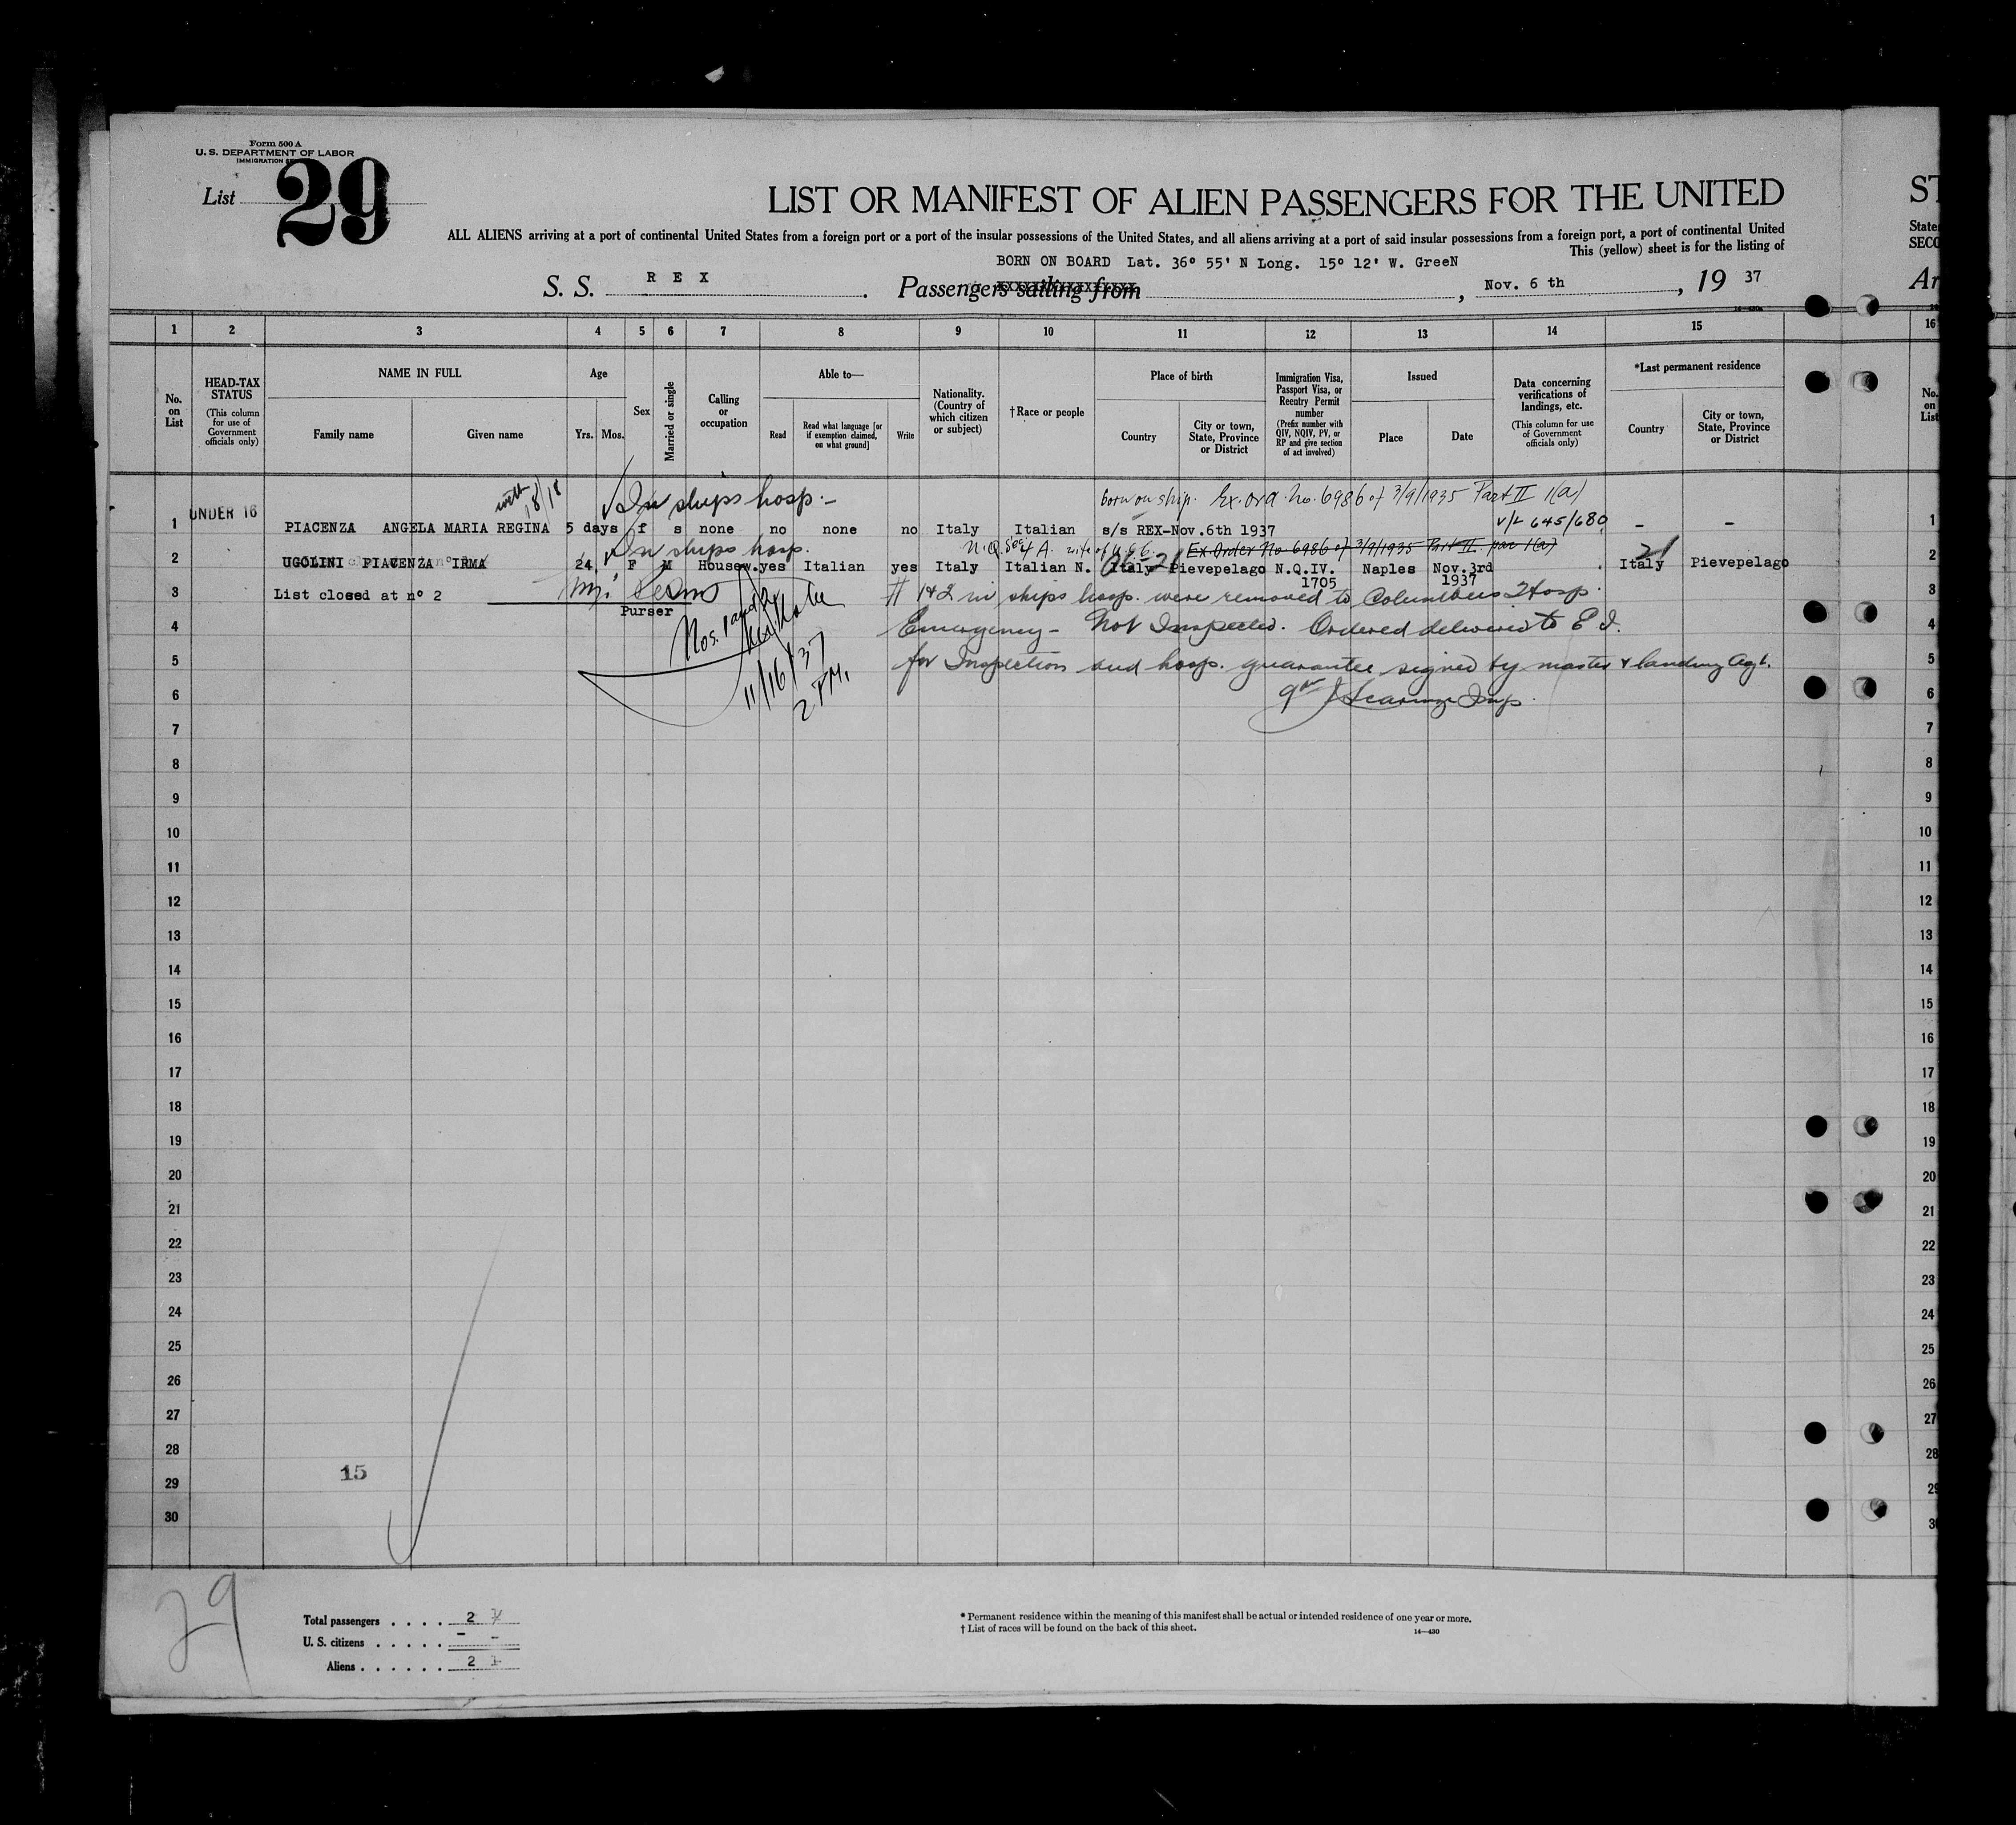 Form 500 A
U. S. DEPARTMENT OF LABOR
IMMIGRATION
List 29
LIST OR MANIFEST OF ALIEN PASSENGERS FOR THE UNITED
ST
ALL ALIENS arriving at a port of continental United States from a foreign port or a port of the insular possessions of the United States, and all aliens arriving at a port of said insular possessions from a foreign port, a port of continental United
State
This (yellow) sheet is for the listing of
SECO
BORN ON BOARD Lat. 36º 55' N Long. 15º 12' W. GreeN
S. S. R E X . Passengers sailing from , Nov. 6 th , 19 37
Ar
1 2 3 4 5 6 7 8 9 10 11 12 13 14 15 16
No. on List
HEAD-TAX STATUS
(This column for use of Government officials only)
NAME IN FULL
Family name
Given name
Age
Yrs. Mos.
Sex
Married or single
Calling or occupation
Able to—
Read
Read what language [or if exemption claimed, on what ground]
Write
Nationality. (Country of which citizen or subject)
† Race or people
Place of birth
Country
City or town, State, Province or District
Immigration Visa, Passport Visa, or Reentry Permit number
(Prefix number with QIV, NQIV, PV, or RP and give section of act involved)
Issued
Place
Date
Data concerning verifications of landings, etc.
(This column for use of Government officials only)
*Last permanent residence
Country
City or town, State, Province or District
No. on List
with 18/18
In ships hosp.-
born on ship. Ex. Ord. No. 6986 of 3/9/1935 Part II 1(a)
UNDER 16
V/L 645/680
1 PIACENZA ANGELA MARIA REGINA 5 days f s none no none no Italy Italian s/s REX-Nov.6th 1937 - - 1
In ships hosp.
N.Q. Sec 4 A. wife of U.S.C. Ex Order No 6986 of 3/9/1935 Part II. par 1(a)
2 UGOLINI PIACENZA IRMA 24 F M Housew. yes Italian yes Italy Italian N. Italy Pievepelago N.Q.IV. Naples Nov.3rd Italy Pievepelago 2
1705 1937
21
3 List closed at nº 2 3
Purser
# 1&2 in ships hosp. were removed to Columbus Hosp.
4 Emergency - Not Inspected. Ordered delivered to E I. 4
Nos. 1 and 2
5 for Inspection and hosp. guarantee signed by master & landing Agt. 5
11/16/37
2 PM.
6 Insp. 6
7 7
8 8
9 9
10 10
11 11
12 12
13 13
14 14
15 15
16 16
17 17
18 18
19 19
20 20
21 21
22 22
23 23
24 24
25 25
26 26
27 27
28 28
15
29 29
30 30
29
Total passengers . . . . . 2
U. S. citizens . . . . . . - -
Aliens . . . . . . . 2 1
* Permanent residence within the meaning of this manifest shall be actual or intended residence of one year or more.
† List of races will be found on the back of this sheet.
14—430